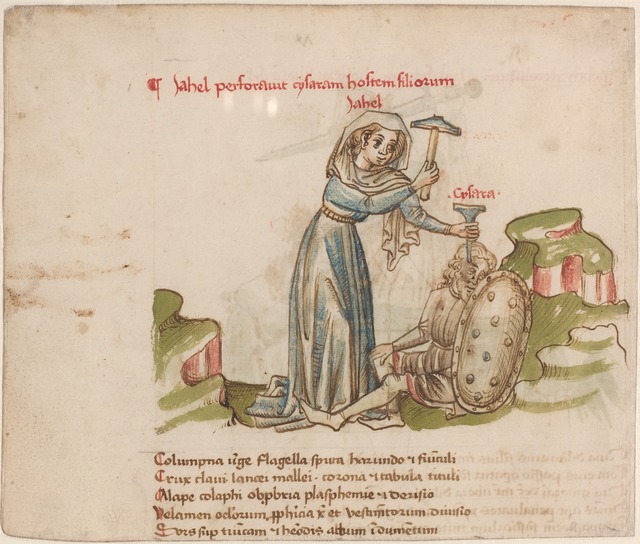 ¶ Jahel perforavit cysaram hostem filiorum
Jahel
Cysara
Columpna virge flagella sputa harundo ⁊ funiculi
Crux clavi lancea mallei corona ⁊ tabula tituli
Alape colaphi obpbria plasphemie ⁊ derisio
Velamen oclorum pphicia xp̄ et vestimtorum divisio
Sors sup tunicam ⁊ heodis album idumentum